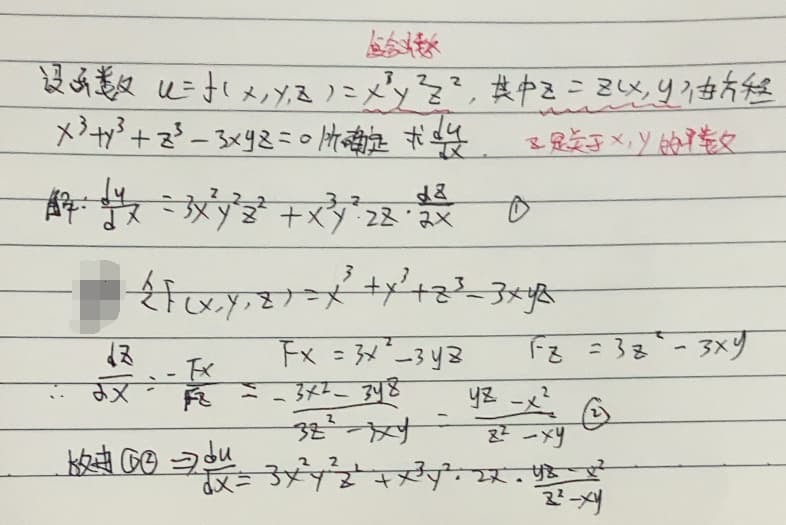 复合函数
设函数 u=f(x,y,z)=x³y²z², 其中z=z(x,y)由方程
x³+y³+z³-3xyz=0所确定 求du/dx. z是关于x,y的函数
解: du/dx = 3x²y²z² + x³y²·2z·dz/dx ①
令F(x,y,z)=x³+y³+z³-3xyz
Fx=3x²-3yz Fz=3z²-3xy
∴ dz/dx = -Fx/Fz = -(3x²-3yz)/(3z²-3xy) = (yz-x²)/(z²-xy) ②
故由①②⇒ du/dx = 3x²y²z² + x³y²·2x·(yz-x²)/(z²-xy)